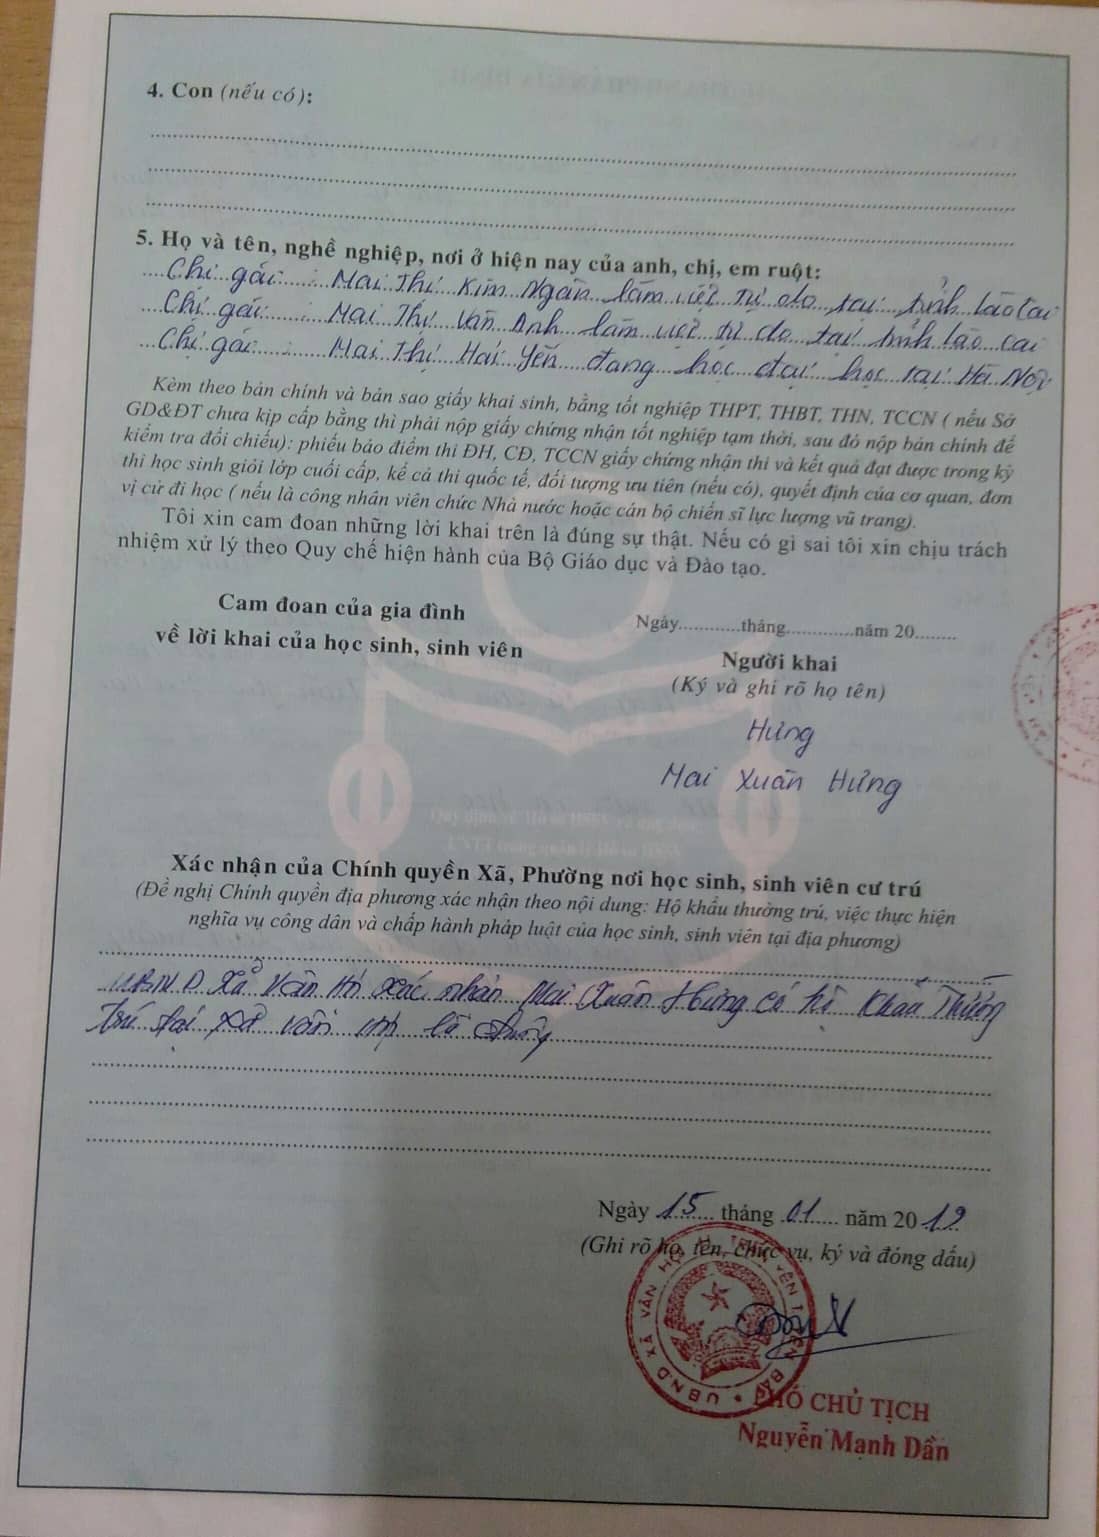 4. Con (nếu có):
5. Họ và tên, nghề nghiệp, nơi ở hiện nay của anh, chị, em ruột:
Chị gái : Mai Thị Kim Ngân làm việc tự do tại tỉnh Lào Cai
Chị gái : Mai Thị Vân Anh làm việc tự do tại tỉnh Lào Cai
Chị gái : Mai Thị Hải Yến đang học đại học tại Hà Nội
Kèm theo bản chính và bản sao giấy khai sinh, bằng tốt nghiệp THPT, THBT, THN, TCCN ( nếu Sở
GD&ĐT chưa kịp cấp bằng thì phải nộp giấy chứng nhận tốt nghiệp tạm thời, sau đó nộp bản chính để
kiểm tra đối chiếu): phiếu báo điểm thi ĐH, CĐ, TCCN giấy chứng nhận thi và kết quả đạt được trong kỳ
thi học sinh giỏi lớp cuối cấp, kể cả thi quốc tế, đối tượng ưu tiên (nếu có), quyết định của cơ quan, đơn
vị cử đi học ( nếu là công nhân viên chức Nhà nước hoặc cán bộ chiến sĩ lực lượng vũ trang).
Tôi xin cam đoan những lời khai trên là đúng sự thật. Nếu có gì sai tôi xin chịu trách
nhiệm xử lý theo Quy chế hiện hành của Bộ Giáo dục và Đào tạo.
Cam đoan của gia đình
về lời khai của học sinh, sinh viên
Ngày............tháng.............năm 20........
Người khai
(Ký và ghi rõ họ tên)
Hưng
Mai Xuân Hưng
Xác nhận của Chính quyền Xã, Phường nơi học sinh, sinh viên cư trú
(Đề nghị Chính quyền địa phương xác nhận theo nội dung: Hộ khẩu thường trú, việc thực hiện
nghĩa vụ công dân và chấp hành pháp luật của học sinh, sinh viên tại địa phương)
UBND Xã Văn xác nhận Mai Xuân Hưng có hộ khẩu Thường
Trú tại xã Văn là đúng
Ngày 15 tháng 01 năm 2019
(Ghi rõ họ, tên, chức vụ, ký và đóng dấu)
UBND XÃ VĂN
PHÓ CHỦ TỊCH
Nguyễn Mạnh Dần